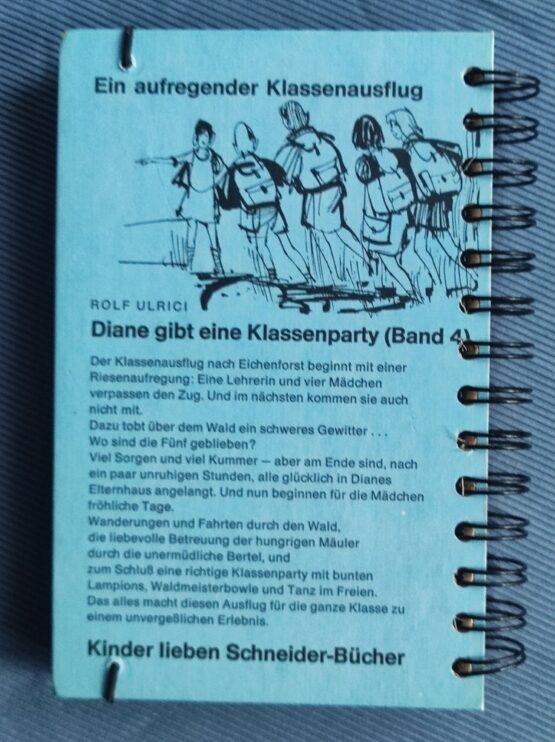 Ein aufregender Klassenausflug
ROLF ULRICI
Diane gibt eine Klassenparty (Band 4)
Der Klassenausflug nach Eichenforst beginnt mit einer
Riesenaufregung: Eine Lehrerin und vier Mädchen
verpassen den Zug. Und im nächsten kommen sie auch
nicht mit.
Dazu tobt über dem Wald ein schweres Gewitter . . .
Wo sind die Fünf geblieben?
Viel Sorgen und viel Kummer — aber am Ende sind, nach
ein paar unruhigen Stunden, alle glücklich in Dianes
Elternhaus angelangt. Und nun beginnen für die Mädchen
fröhliche Tage.
Wanderungen und Fahrten durch den Wald,
die liebevolle Betreuung der hungrigen Mäuler
durch die unermüdliche Bertel, und
zum Schluß eine richtige Klassenparty mit bunten
Lampions, Waldmeisterbowle und Tanz im Freien.
Das alles macht diesen Ausflug für die ganze Klasse zu
einem unvergeßlichen Erlebnis.
Kinder lieben Schneider-Bücher